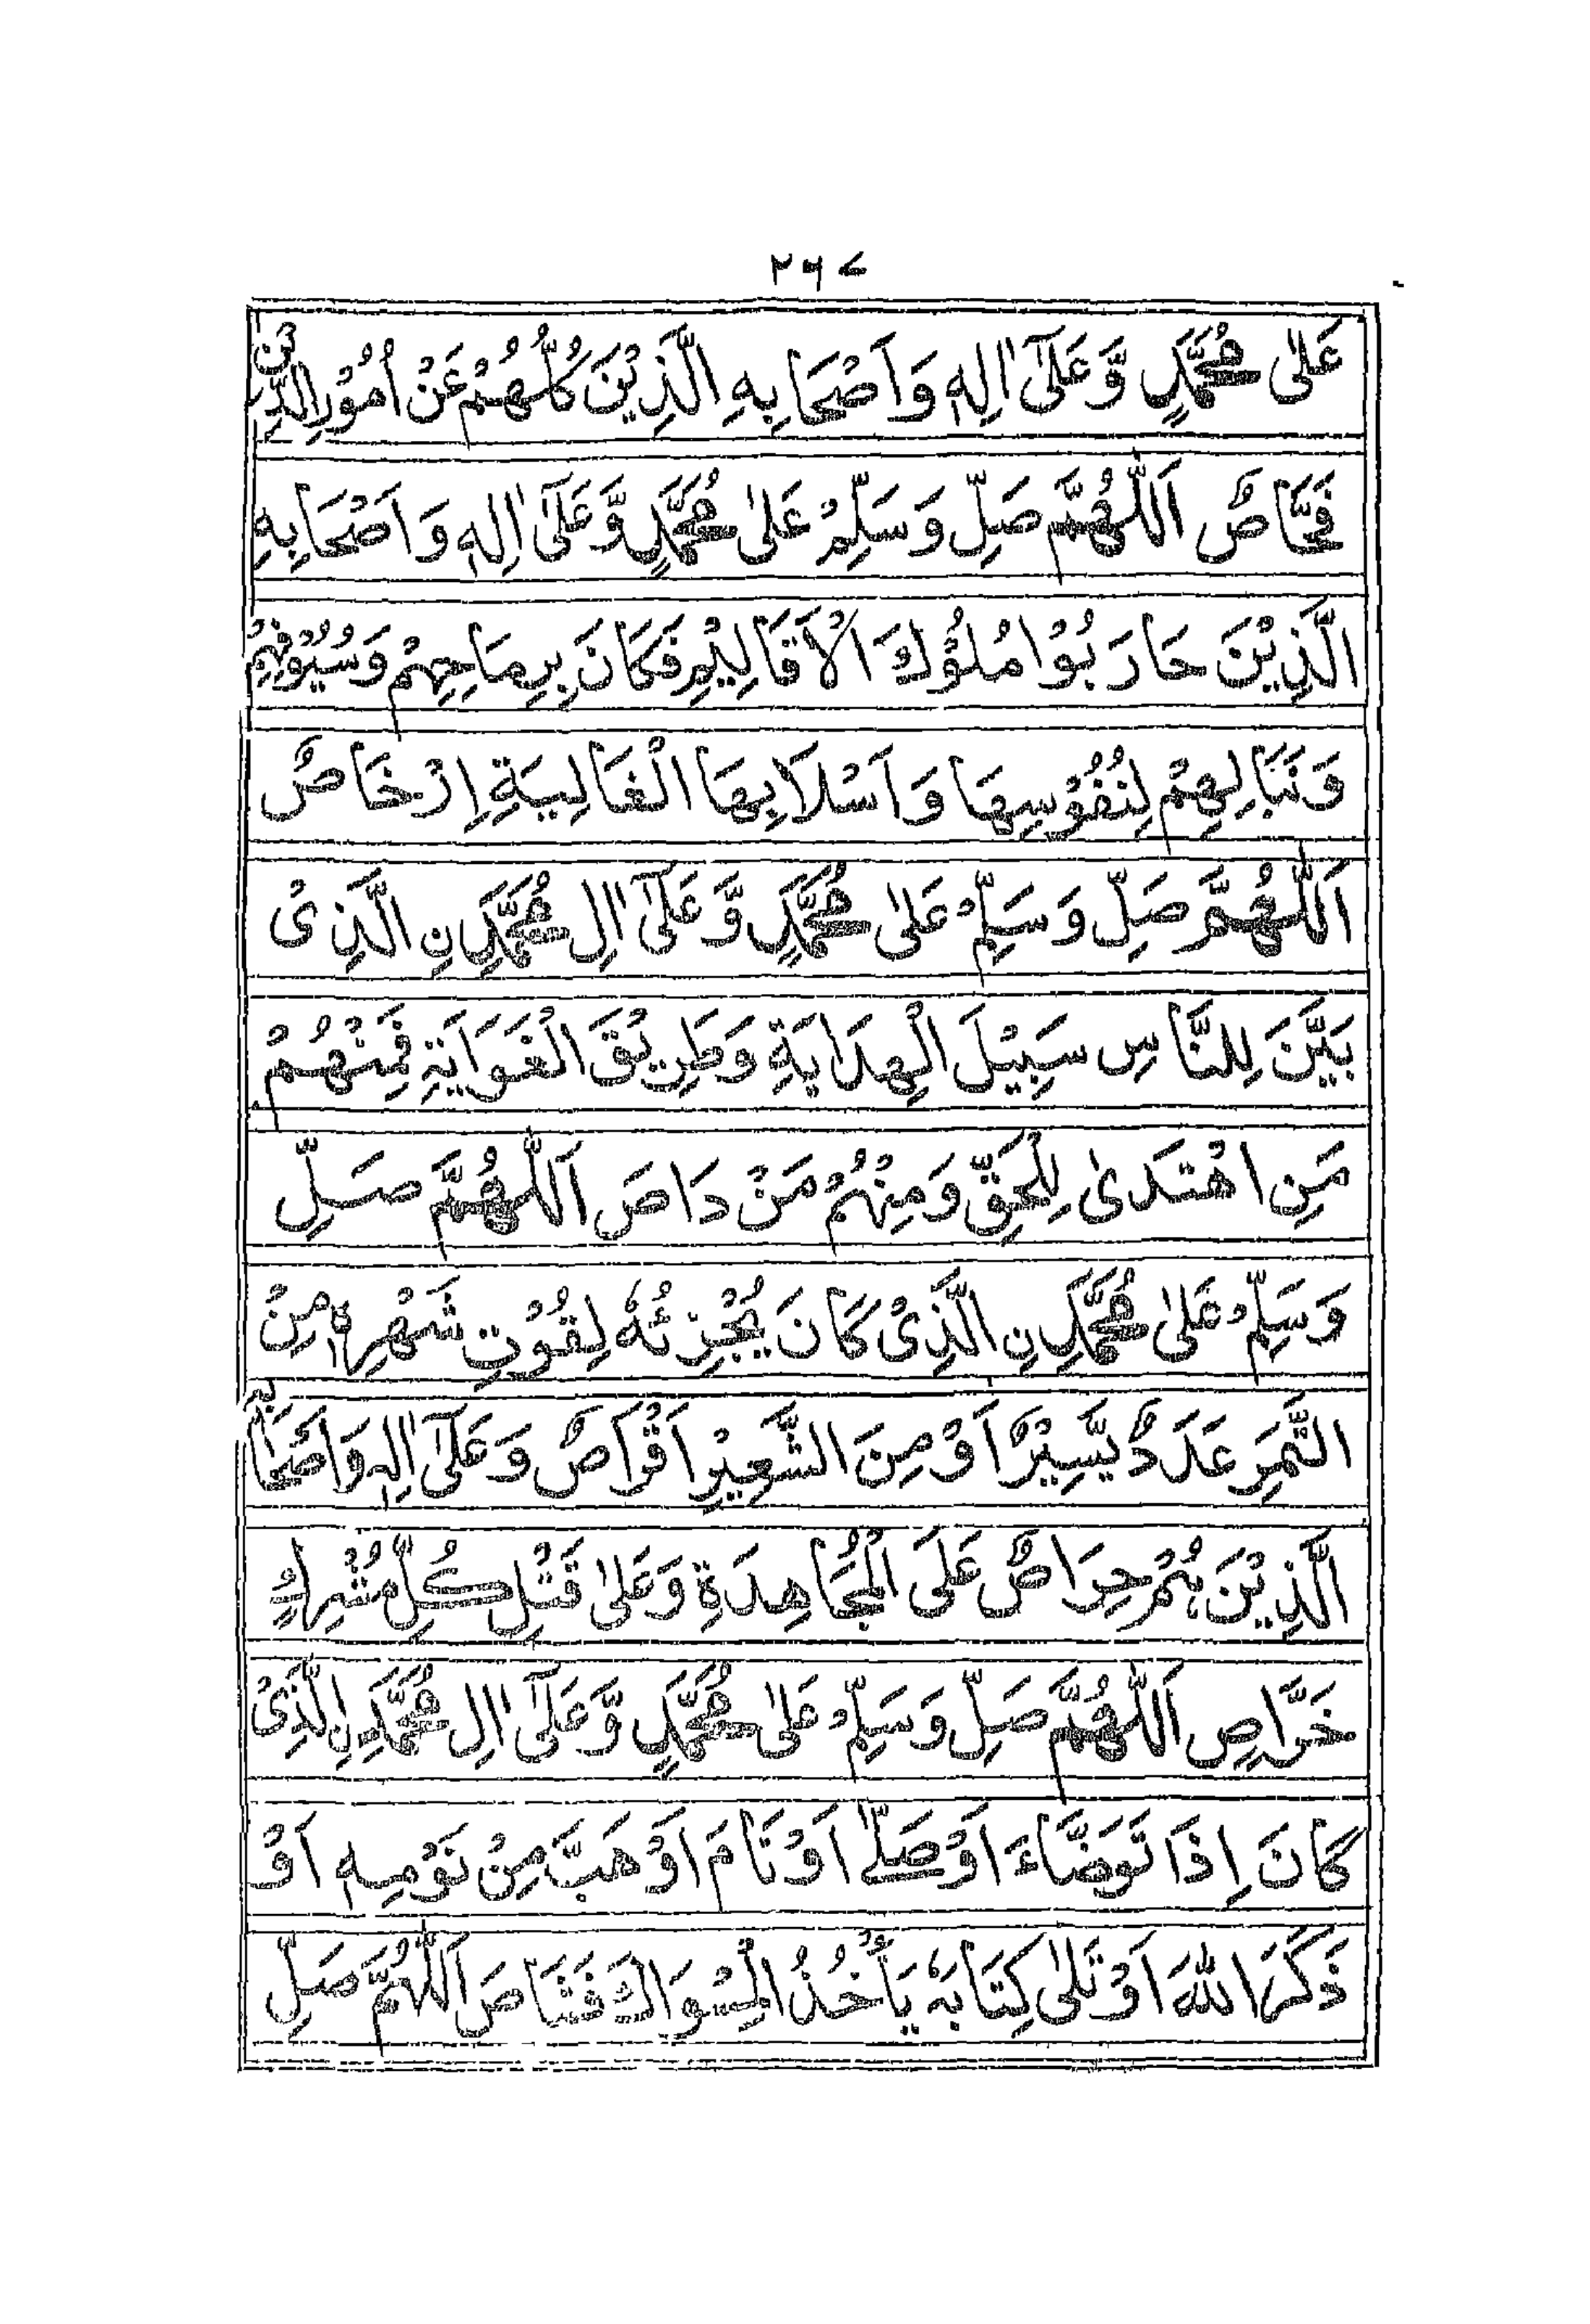 ۲۶۷
عَلٰى مُحَمَّدٍ وَّعَلٰٓى اٰلِهٖ وَاَصْحَابِهِ الَّذِيْنَ كُلُّهُمْ عَنْ اُمُوْرِ الدِّيْنِ
فَحَّاصٌ اَللّٰهُمَّ صَلِّ وَسَلِّمْ عَلٰى مُحَمَّدٍ وَّعَلٰٓى اٰلِهٖ وَاَصْحَابِهِ
الَّذِيْنَ حَارَبُوْا مُلُوْكَ الْاَقَالِيْمِ فَكَانَ بِرِمَاحِهِمْ وَسُيُوْفِهِمْ
وَنَبَالِهِمْ لِنُفُوْسِهَا وَاَسْلَابِهَا الْغَالِيَةِ اِرْخَاصٌ
اَللّٰهُمَّ صَلِّ وَسَلِّمْ عَلٰى مُحَمَّدٍ وَّعَلٰٓى اٰلِ مُحَمَّدِنِ الَّذِىْ
بَيَّنَ لِلنَّاسِ سَبِيْلَ الْهِدَايَةِ وَطَرِيْقَ الْغَوَايَةِ فَمِنْهُمْ
مَنِ اهْتَدٰى لِلْحَقِّ وَمِنْهُمْ مَنْ دَاصَ اَللّٰهُمَّ صَلِّ
وَسَلِّمْ عَلٰى مُحَمَّدِنِ الَّذِىْ كَانَ يُجْزِئُهٗ لِقُوْتِ شَهْرِهٖ مِنَ
التَّمَرِ عَدَدٌ يَّسِيْرٌ اَوْ مِنَ الشَّعِيْرِ اَقْرَاصٌ وَعَلٰٓى اٰلِهٖ وَاَصْحَابِهِ
الَّذِيْنَ هُمْ حِرَاصٌ عَلَى الْمُجَاهِدَةِ وَعَلٰى قَتْلِ كُلِّ مُشْرِكٍ
خَرَّاصٍ اَللّٰهُمَّ صَلِّ وَسَلِّمْ عَلٰى مُحَمَّدٍ وَّعَلٰٓى اٰلِ مُحَمَّدِنِ الَّذِىْ
كَانَ اِذَا تَوَضَّاءَ اَوْ صَلّٰى اَوْ نَامَ اَوْ هَبَّ مِنْ نَوْمِهٖ اَوْ
ذَكَرَ اللهَ اَوْ تَلٰى كِتَابَهٗ يَأْخُذُ الْمِسْوَاكَ فَشَاصَ اَللّٰهُمَّ صَلِّ